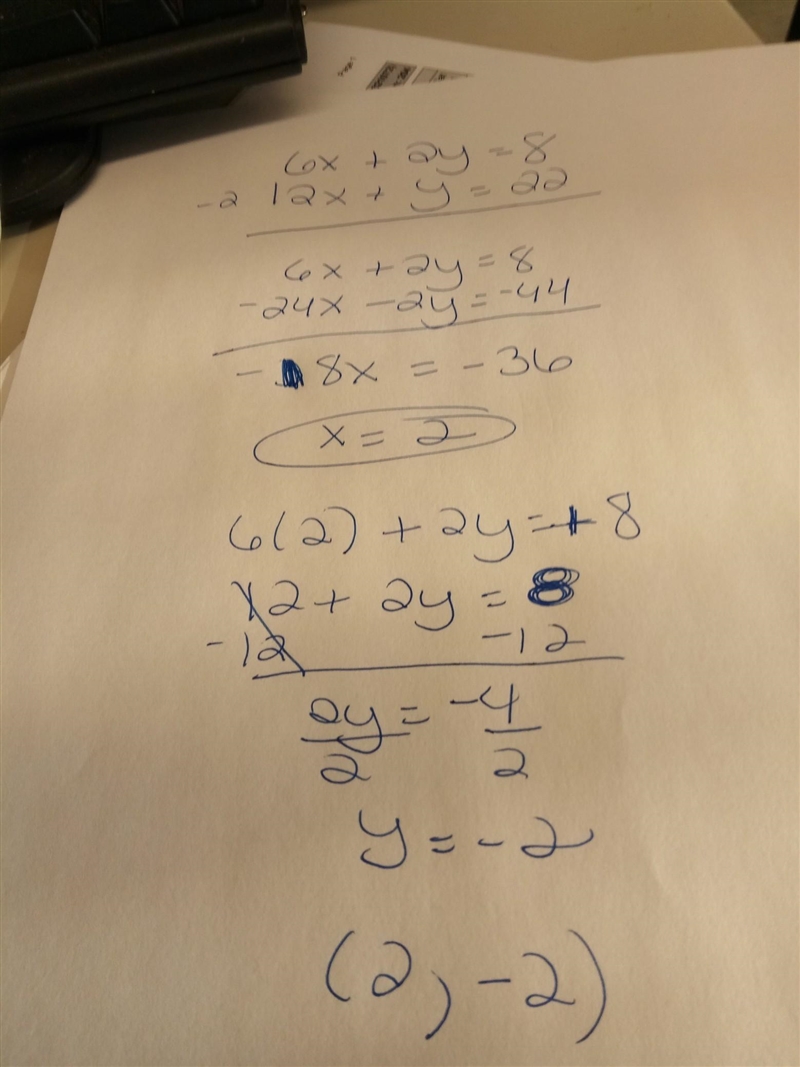 Page 1
6x + 2y = 8
-2 12x + y = 22
6x + 2y = 8
-24x - 2y = -44
-18x = -36
x = 2
6(2) + 2y = +8
12 + 2y = 8
-12 -12
2y = -4
2 2
y = -2
(2, -2)